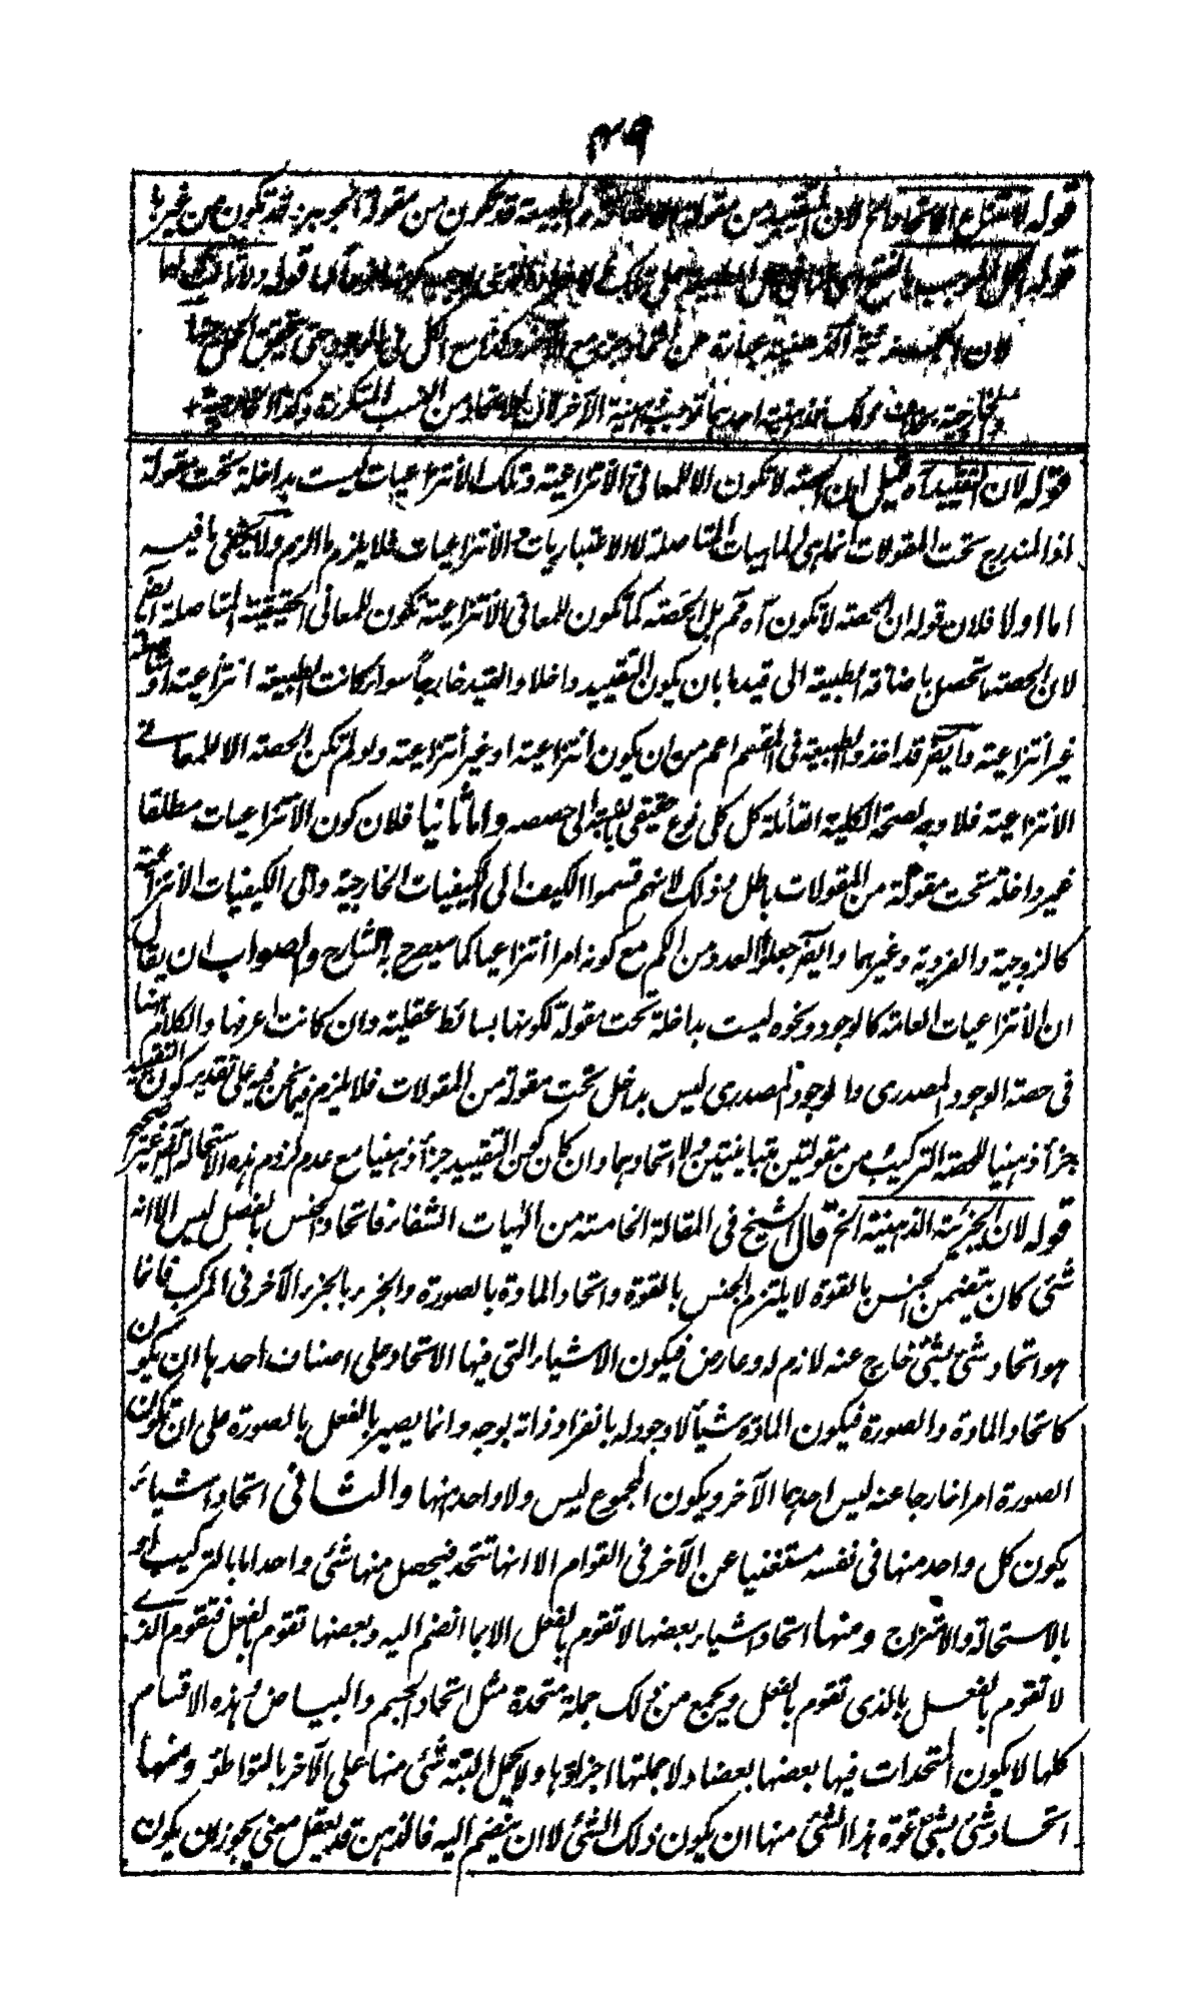 ٤٩
قوله لامتناع الاتحاد الخ لان التقييد من مقولة الاضافة والطبيعة قد تكون من مقولة الجوهر وقد تكون من غيرها
قوله
لان
قوله لان التقييد آه قيل ان الحصة لا تكون الا للمعانى الانتزاعية وتلك الانتزاعيات ليست بداخلة تحت مقولة
اذ المندرج تحت المقولات انما هى الماهيات المتاصلة لا الاعتباريات والانتزاعيات فلا يلزم ما الزم ولا يخفى ما فيه
اما اولا فلان قوله ان الحصة لا تكون آه مم بل الحصة كما تكون للمعانى الانتزاعية تكون للمعانى الحقيقية المتاصلة ايضا
لان الحصة ما تحصل باضافة الطبيعة الى قيد ما بان يكون التقييد داخلا والقيد خارجا سواء كانت الطبيعة انتزاعية او
غير انتزاعية وايضا قد اخذوا الطبيعة فى المقسم اعم من ان يكون انتزاعية او غير انتزاعية ولو لم تكن الحصة الا للمعانى
الانتزاعية فلا وجه لصحة الكلية القائلة كل كلى نوع حقيقى بالنسبة الى حصصه واما ثانيا فلان كون الانتزاعيات مطلقا
غير داخلة تحت مقولة من المقولات باطل وذلك لانهم قسموا الكيف الى الكيفيات الخارجية والى الكيفيات الانتزاعية
كالزوجية والفردية وغيرهما وايضا جعلوا العدد من الكم مع كونه امرا انتزاعيا كما سيصرح به الشارح والصواب ان يقال
ان الانتزاعيات العامة كالوجود ونحوه ليست بداخلة تحت مقولة لكونها بسائط عقلية وان كانت اعرفها والكلام ههنا
فى حصة الوجود المصدرى والوجود المصدرى ليس بداخل تحت مقولة من المقولات فلا يلزم فيما نحن فيه على تقدير كون التقييد
جزأ ذهنيا للحصة التركيب من مقولتين متباينتين ولا اتحادهما وان كان كون التقييد جزأ ذهنيا مع عدم لزوم هذه الاستحالة ايضا غير صحيح
قوله لان الجزئية الذهنية الخ قال الشيخ فى المقالة الخامسة من الهيات الشفاء فاتحاد الجنس بالفصل ليس الا انه
شئ كان يتضمن الجنس بالقوة لا يلتزم الجنس بالقوة واتحاد المادة بالصورة والجزء بالجزء الآخر فى المركب فانما
هو اتحاد شئ بشئ خارج عنه لازم له وعارض فيكون الاشياء التى فيها الاتحاد على اصناف احدها ان يكون
كاتحاد المادة والصورة فيكون المادة شيأ لا وجود له بانفراد ذاته بوجه وانما يصير بالفعل بالصورة على ان تكون
الصورة امرا خارجا عنه ليس احدهما الآخر ويكون المجموع ليس ولا واحد منهما والثانى اتحاد اشياء
يكون كل واحد منها فى نفسه مستغنيا عن الآخر فى القوام الا انها تتحد فيحصل منها شئ واحد اما بالتركيب او
بالاستحالة والامتزاج ومنها اتحاد اشياء بعضها لا تقوم بالفعل الا بما انضم اليه وبعضها تقوم بالفعل فتقوم الذى
لا تقوم بالفعل بالذى تقوم بالفعل ويجمع من ذلك جملة متحدة مثل اتحاد الجسم والبياض وهذه الاقسام
كلها لا يكون المتحدات فيها بعضها بعضا ولا جملتها اجزاؤها ولا يحمل البتة شئ منها على الآخر بالتواطؤ ومنها
اتحاد شئ بشئ قوة هذا الشئ منها ان يكون ذلك الشئ لا ان ينضم اليه فالذهن قد يعقل معنى يجوز ان يكون